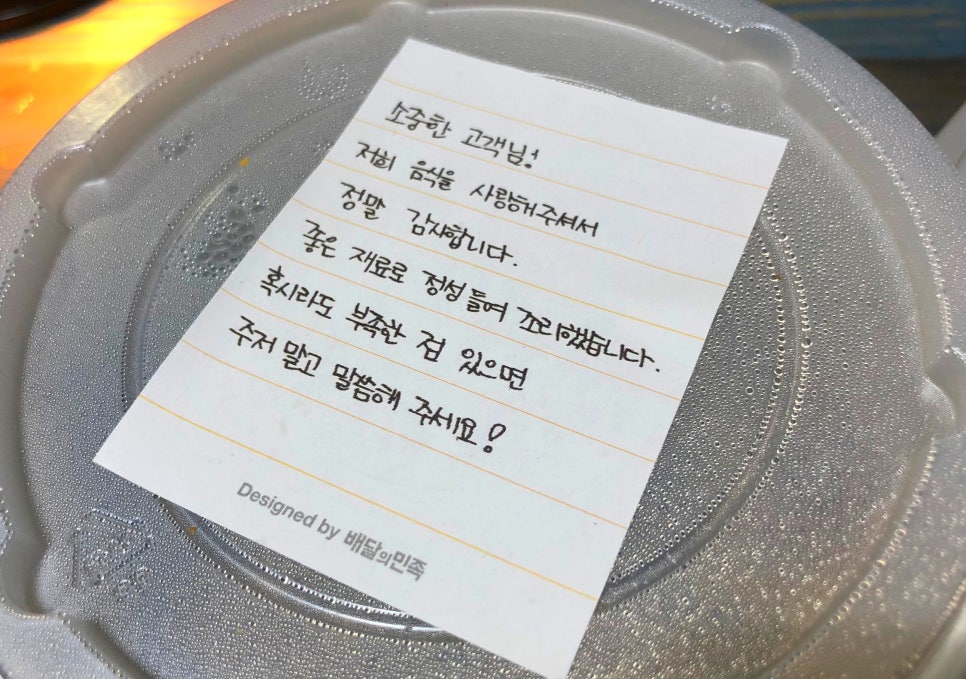 소중한 고객님!
저희 음식을 사랑해주셔서
정말 감사합니다.
좋은 재료로 정성들여 조리했습니다.
혹시라도 부족한 점 있으면
주저 말고 말씀해 주세요!
Designed by 배달의민족